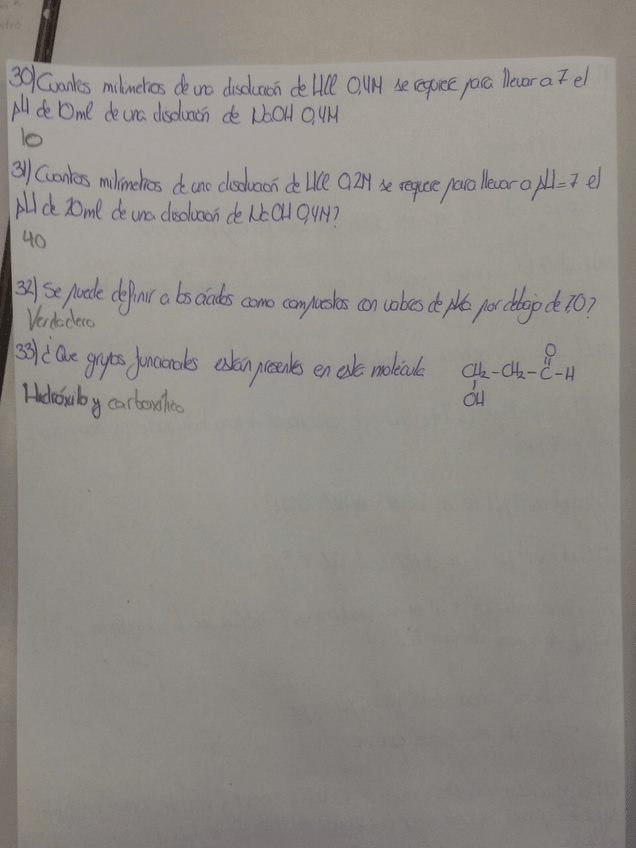 30) Cuantos milimetros de una disolución de HCl 0,4M se requiere para llevar a 7 el
pH de 10ml de una disolución de NaOH 0,4M
10
31) Cuantos milimetros de una disolución de HCl 0,2M se requiere para llevar a pH=7 el
pH de 20ml de una disolución de NaOH 0,4M?
40
32) Se puede definir a los ácidos como compuestos con valores de pKa por debajo de 7,0?
Verdadero
33) ¿Que grupos funcionales están presentes en esta molécula
O
CH2-CH2-C-H
OH
Hidróxilo y carboxílico